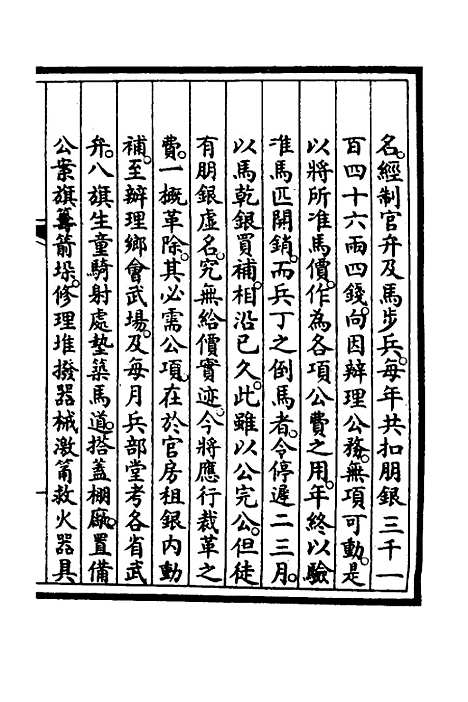 名。經制官弁及馬步兵。每年共扣朋銀三千一
百四十六兩四錢。向因辦理公務。無項可動。是
以將所准馬價。作為各項公費之用。年終以驗
准馬匹開銷。而兵丁之倒馬者。令停遲二三月。
以馬乾銀買補。相沿已久。此雖以公完公。但徒
有朋銀虛名。究無給價實迹。今將應行裁革之
費。一概革除。其必需公項。在於官房租銀內動
補。至辦理鄉會武場。及每月兵部堂考各省武
弁。八旗生童騎射處墊築馬道。搭蓋棚廠。置備
公案旗纛箭垛。修理堆撥器械激筩救火器具